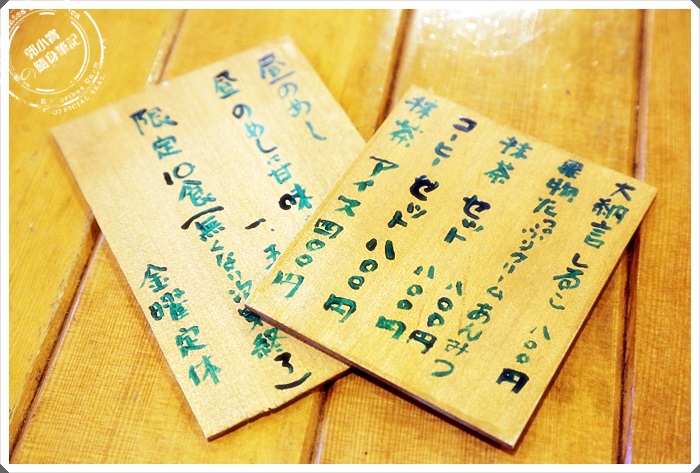 郭小寶
の隨身筆記
大納言しるこ 八〇〇円
果物たっぷりクリームあんみつ
八〇〇円
抹茶 セット 八〇〇円
コーヒー セット 八〇〇円
抹茶 アイス 四〇〇円
昼のめし
昼のめしに甘味 一、
限定10食(無くなり次第終了)
金曜定休